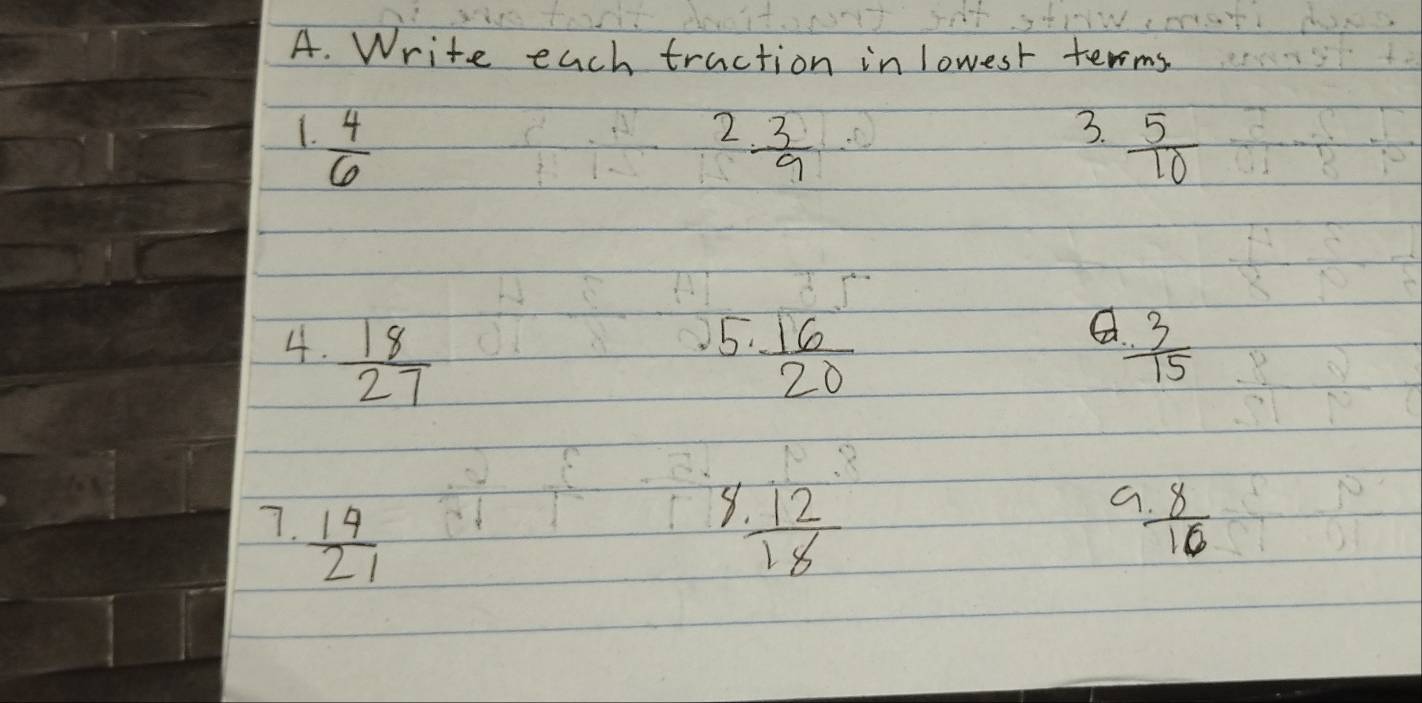 A. Write each fraction in lowest terms.
1. 4/6 2. 3/9 3. 5/10
4. 18/27 5. 16/20 6. 3/15
7. 14/21 8. 12/18 9. 8/16